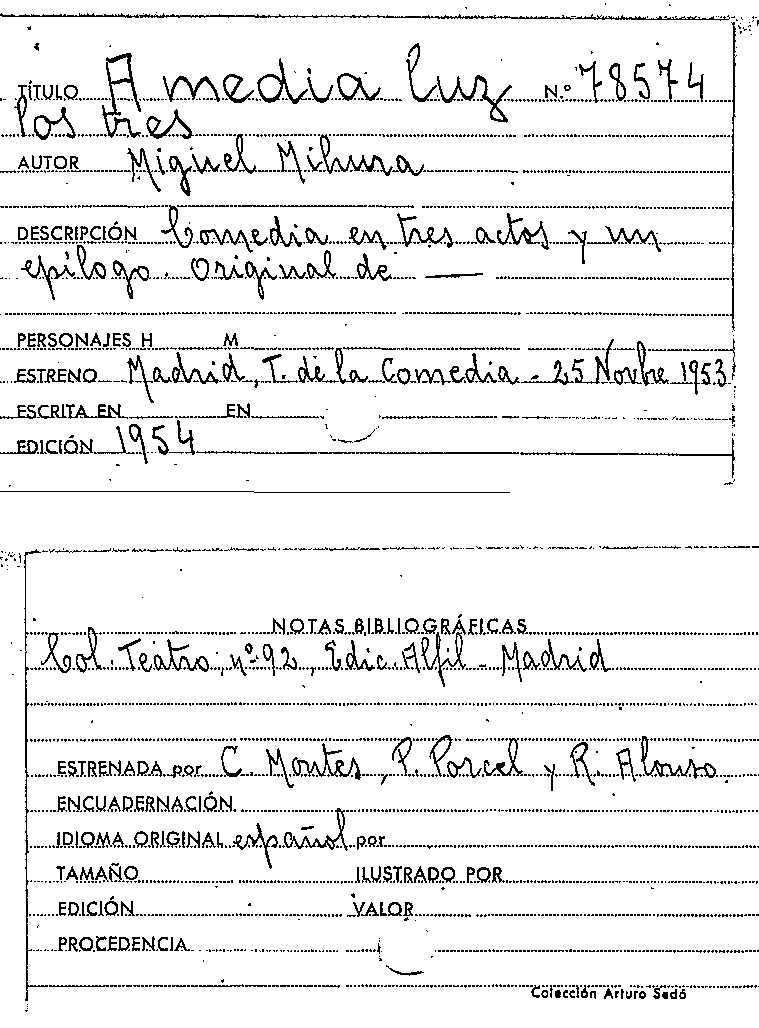 TÍTULO A media luz N.º 78574
los tres
AUTOR Miguel Mihura
DESCRIPCIÓN Comedia en tres actos y un
epílogo. Original de —
PERSONAJES H M
ESTRENO Madrid, T. de la Comedia - 25 Novbre 1953
ESCRITA EN EN
EDICIÓN 1954
NOTAS BIBLIOGRÁFICAS
Col. Teatro, nº 92, Edic. Alfil - Madrid
ESTRENADA por C. Montes, P. Porcel y R. Alonso
ENCUADERNACIÓN
IDIOMA ORIGINAL español por
TAMAÑO ILUSTRADO POR
EDICIÓN VALOR
PROCEDENCIA
Colección Arturo Sedó